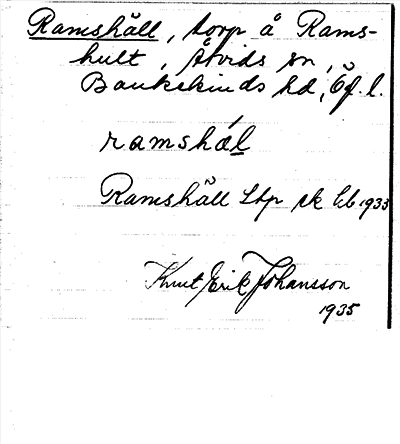 Ramshäll, torp å Rams-
hult, Åtvids sn,
Bankekinds hd, Ög. l.
ramshál
Ramshäll Ltp sk lb 1933
Knut Erik Johansson
1935